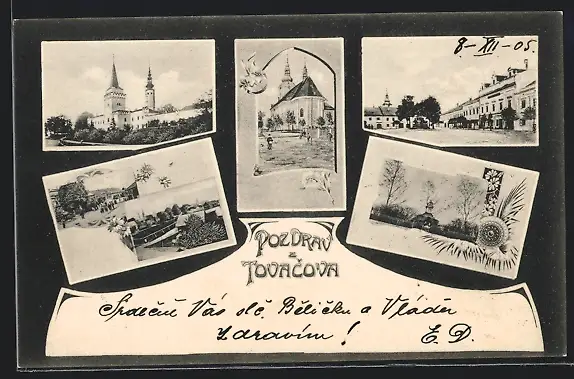 8-XII-05.
POZDRAV
z
TOVAČOVA
Srdečně Vás slč. Běličku a Vládu
zdravím! E. D.